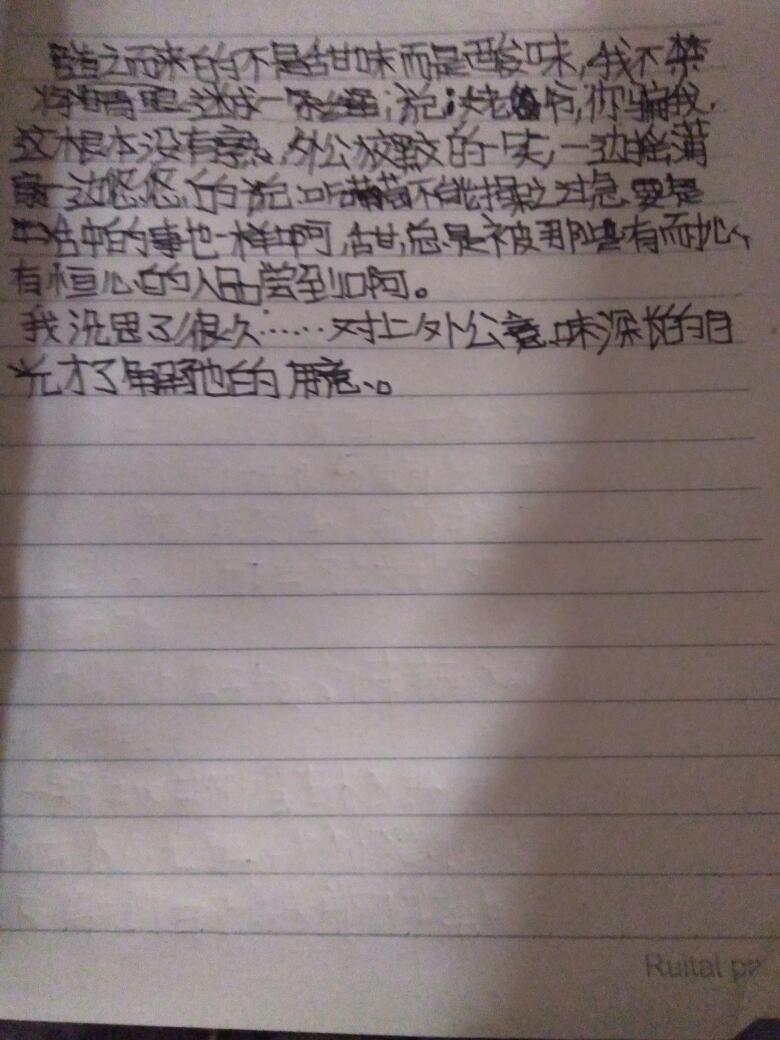 随之而来的不是甜味而是酸味，我不禁
将 眯成一条缝，说：姥爷，你骗我，
这根本没有熟。外公狡黠的一笑，一边摘葡
萄一边悠悠的说：吃葡萄不能操之过急，要是
生活中的事也一样啊，甜，总是被那些有耐心
有恒心的人品尝到啊。
我沉思了很久……对上外公意味深长的目
光才了解他的用意。
Ruitai